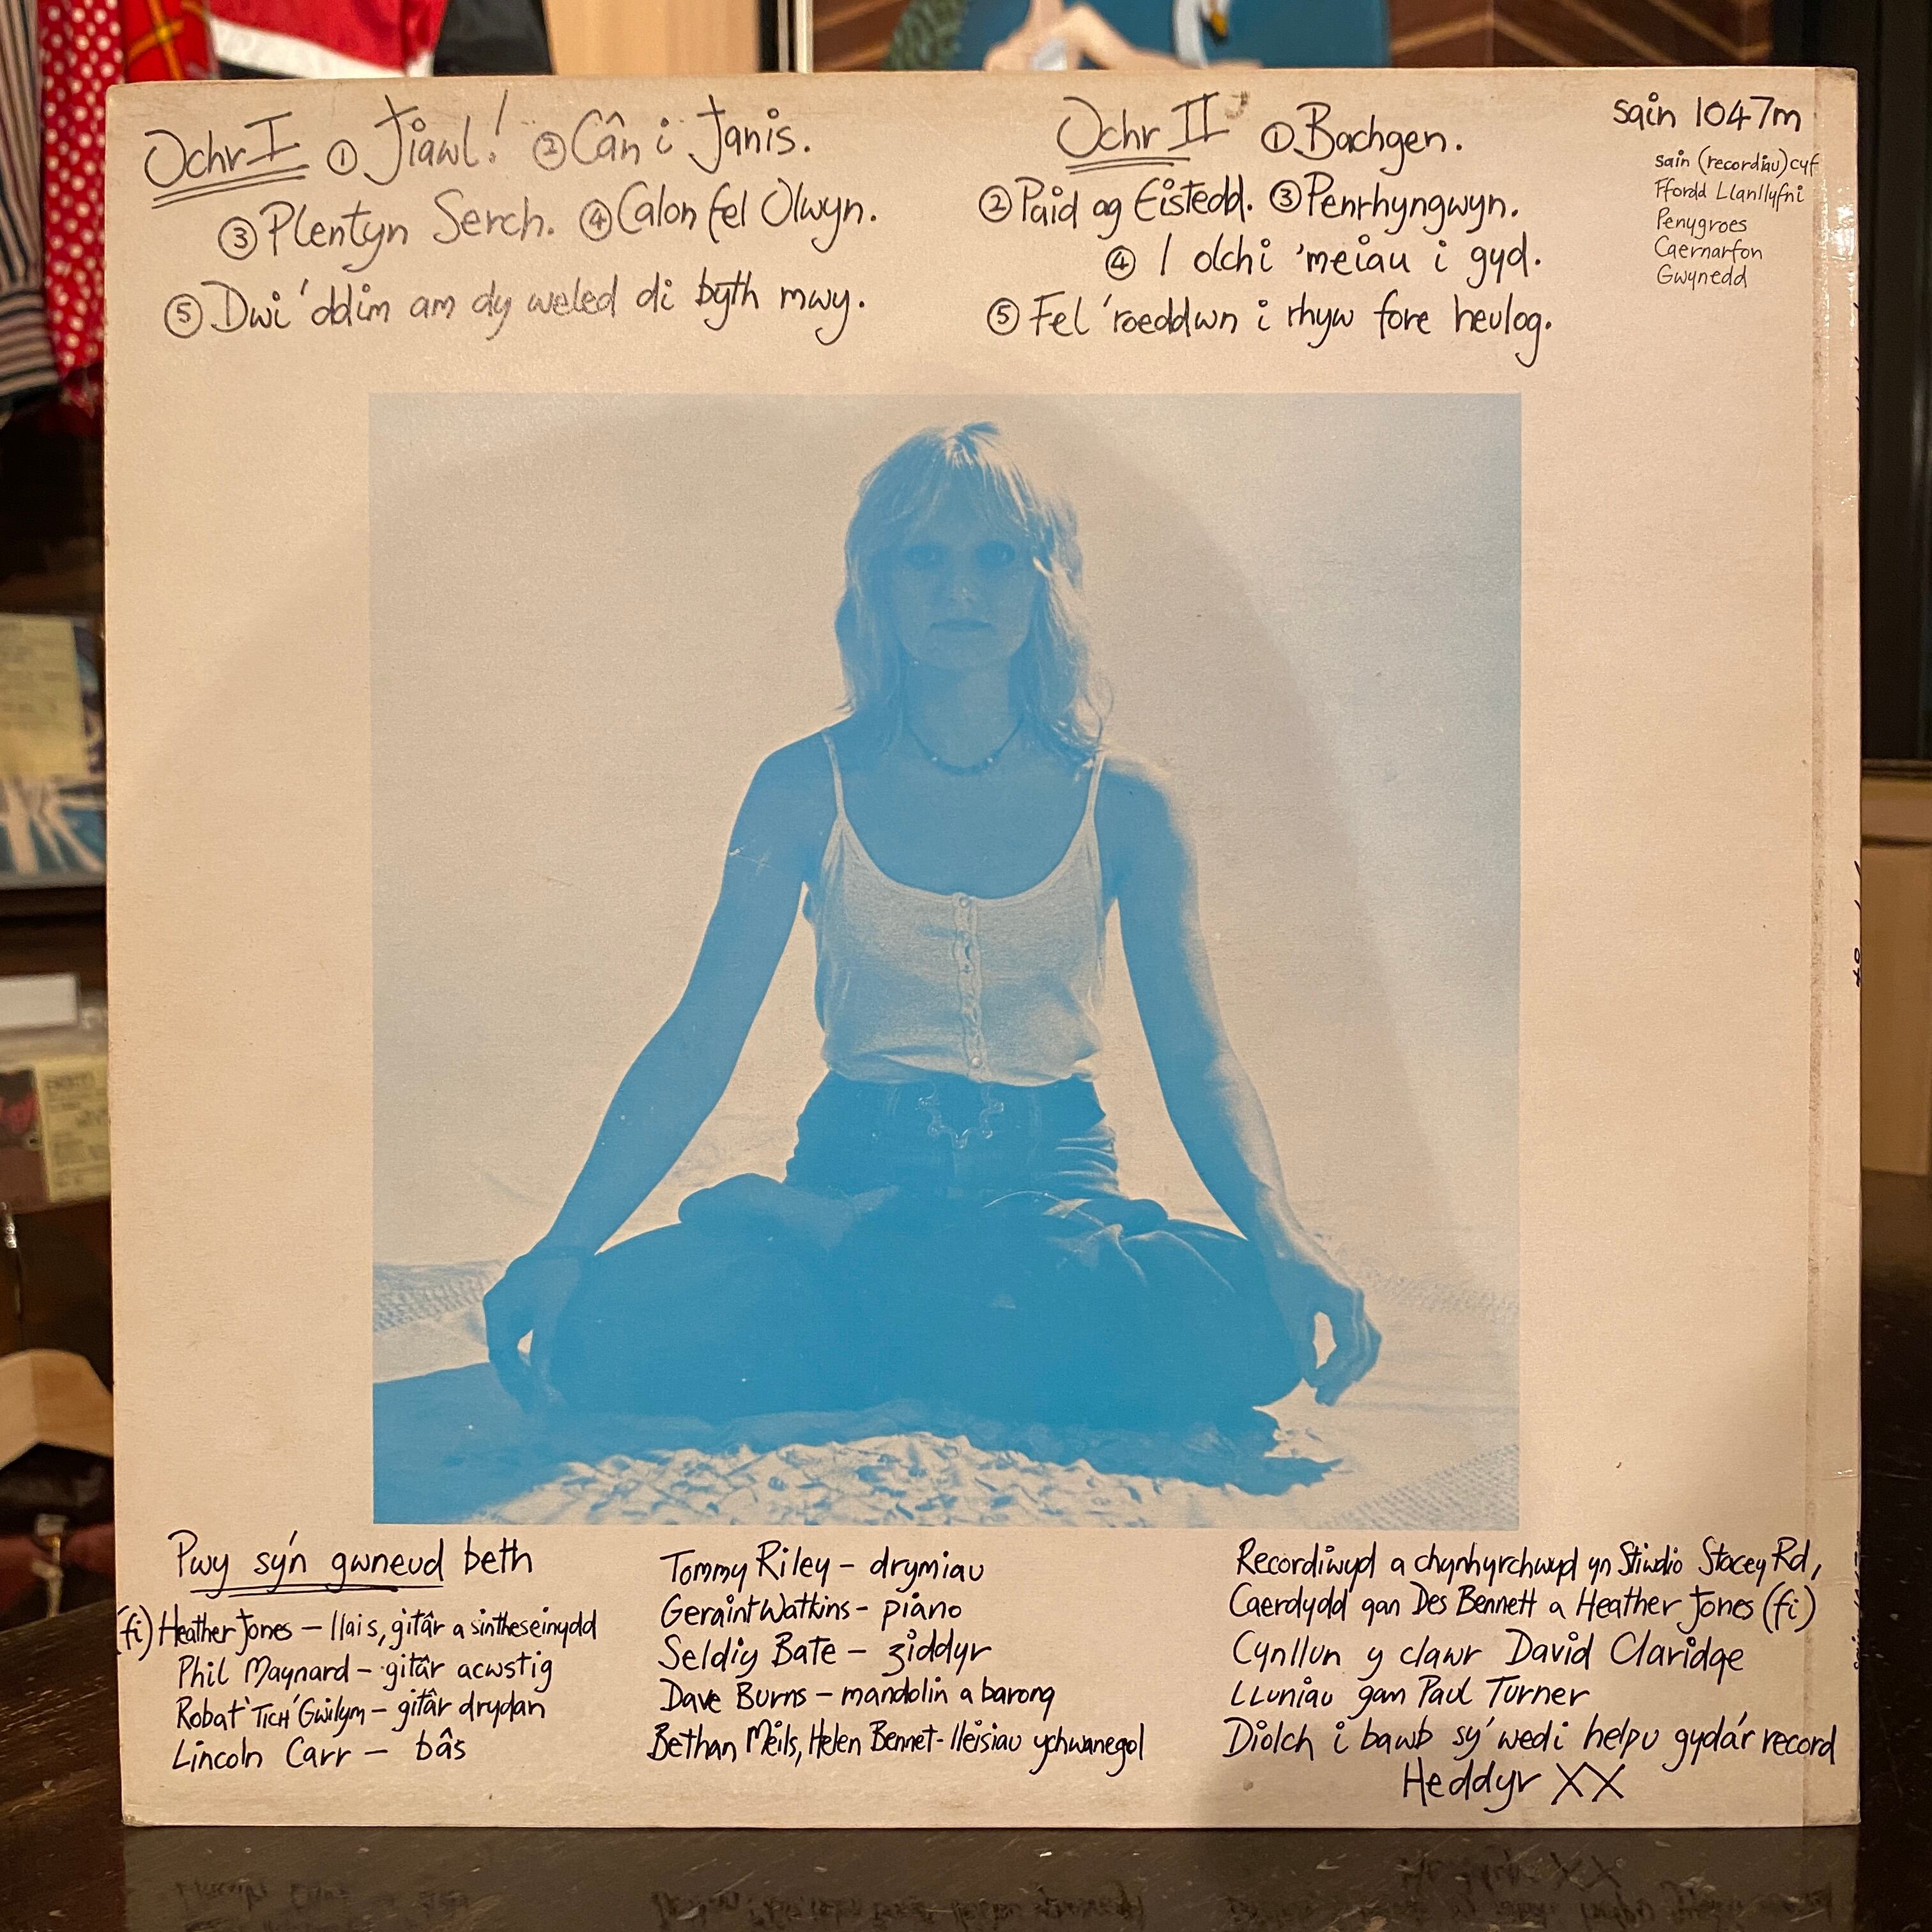 Ochr I ① Jiawl! ② Cân i Janis.
③ Plentyn Serch. ④ Calon fel Olwyn.
⑤ Dwi 'ddim am dy weled di byth mwy.
Ochr II ① Bachgen.
② Paid ag Eistedd. ③ Penrhyngwyn.
④ I olchi 'meiau i gyd.
⑤ Fel 'roeddwn i rhyw fore heulog.
sain 1047m
sain (recordiau) cyf
Ffordd Llanllyfni
Penygroes
Caernarfon
Gwynedd
Pwy sy'n gwneud beth
(fi) Heather Jones – llais, gitâr a sintheseinydd
Phil Maynard – gitâr acwstig
Robat 'TICH' Gwilym – gitâr drydan
Lincoln Carr – bâs
Tommy Riley – drymiau
Geraint Watkins – piano
Seldiy Bate – ziddyr
Dave Burns – mandolin a barong
Bethan Meils, Helen Bennet - lleisiau ychwanegol
Recordiwyd a chynhyrchwyd yn Stiwdio Stacey Rd,
Caerdydd gan Des Bennett a Heather Jones (fi)
Cynllun y clawr David Claridge
Lluniau gan Paul Turner
Diolch i bawb sy' wedi helpu gyda'r record
Heddyr XX